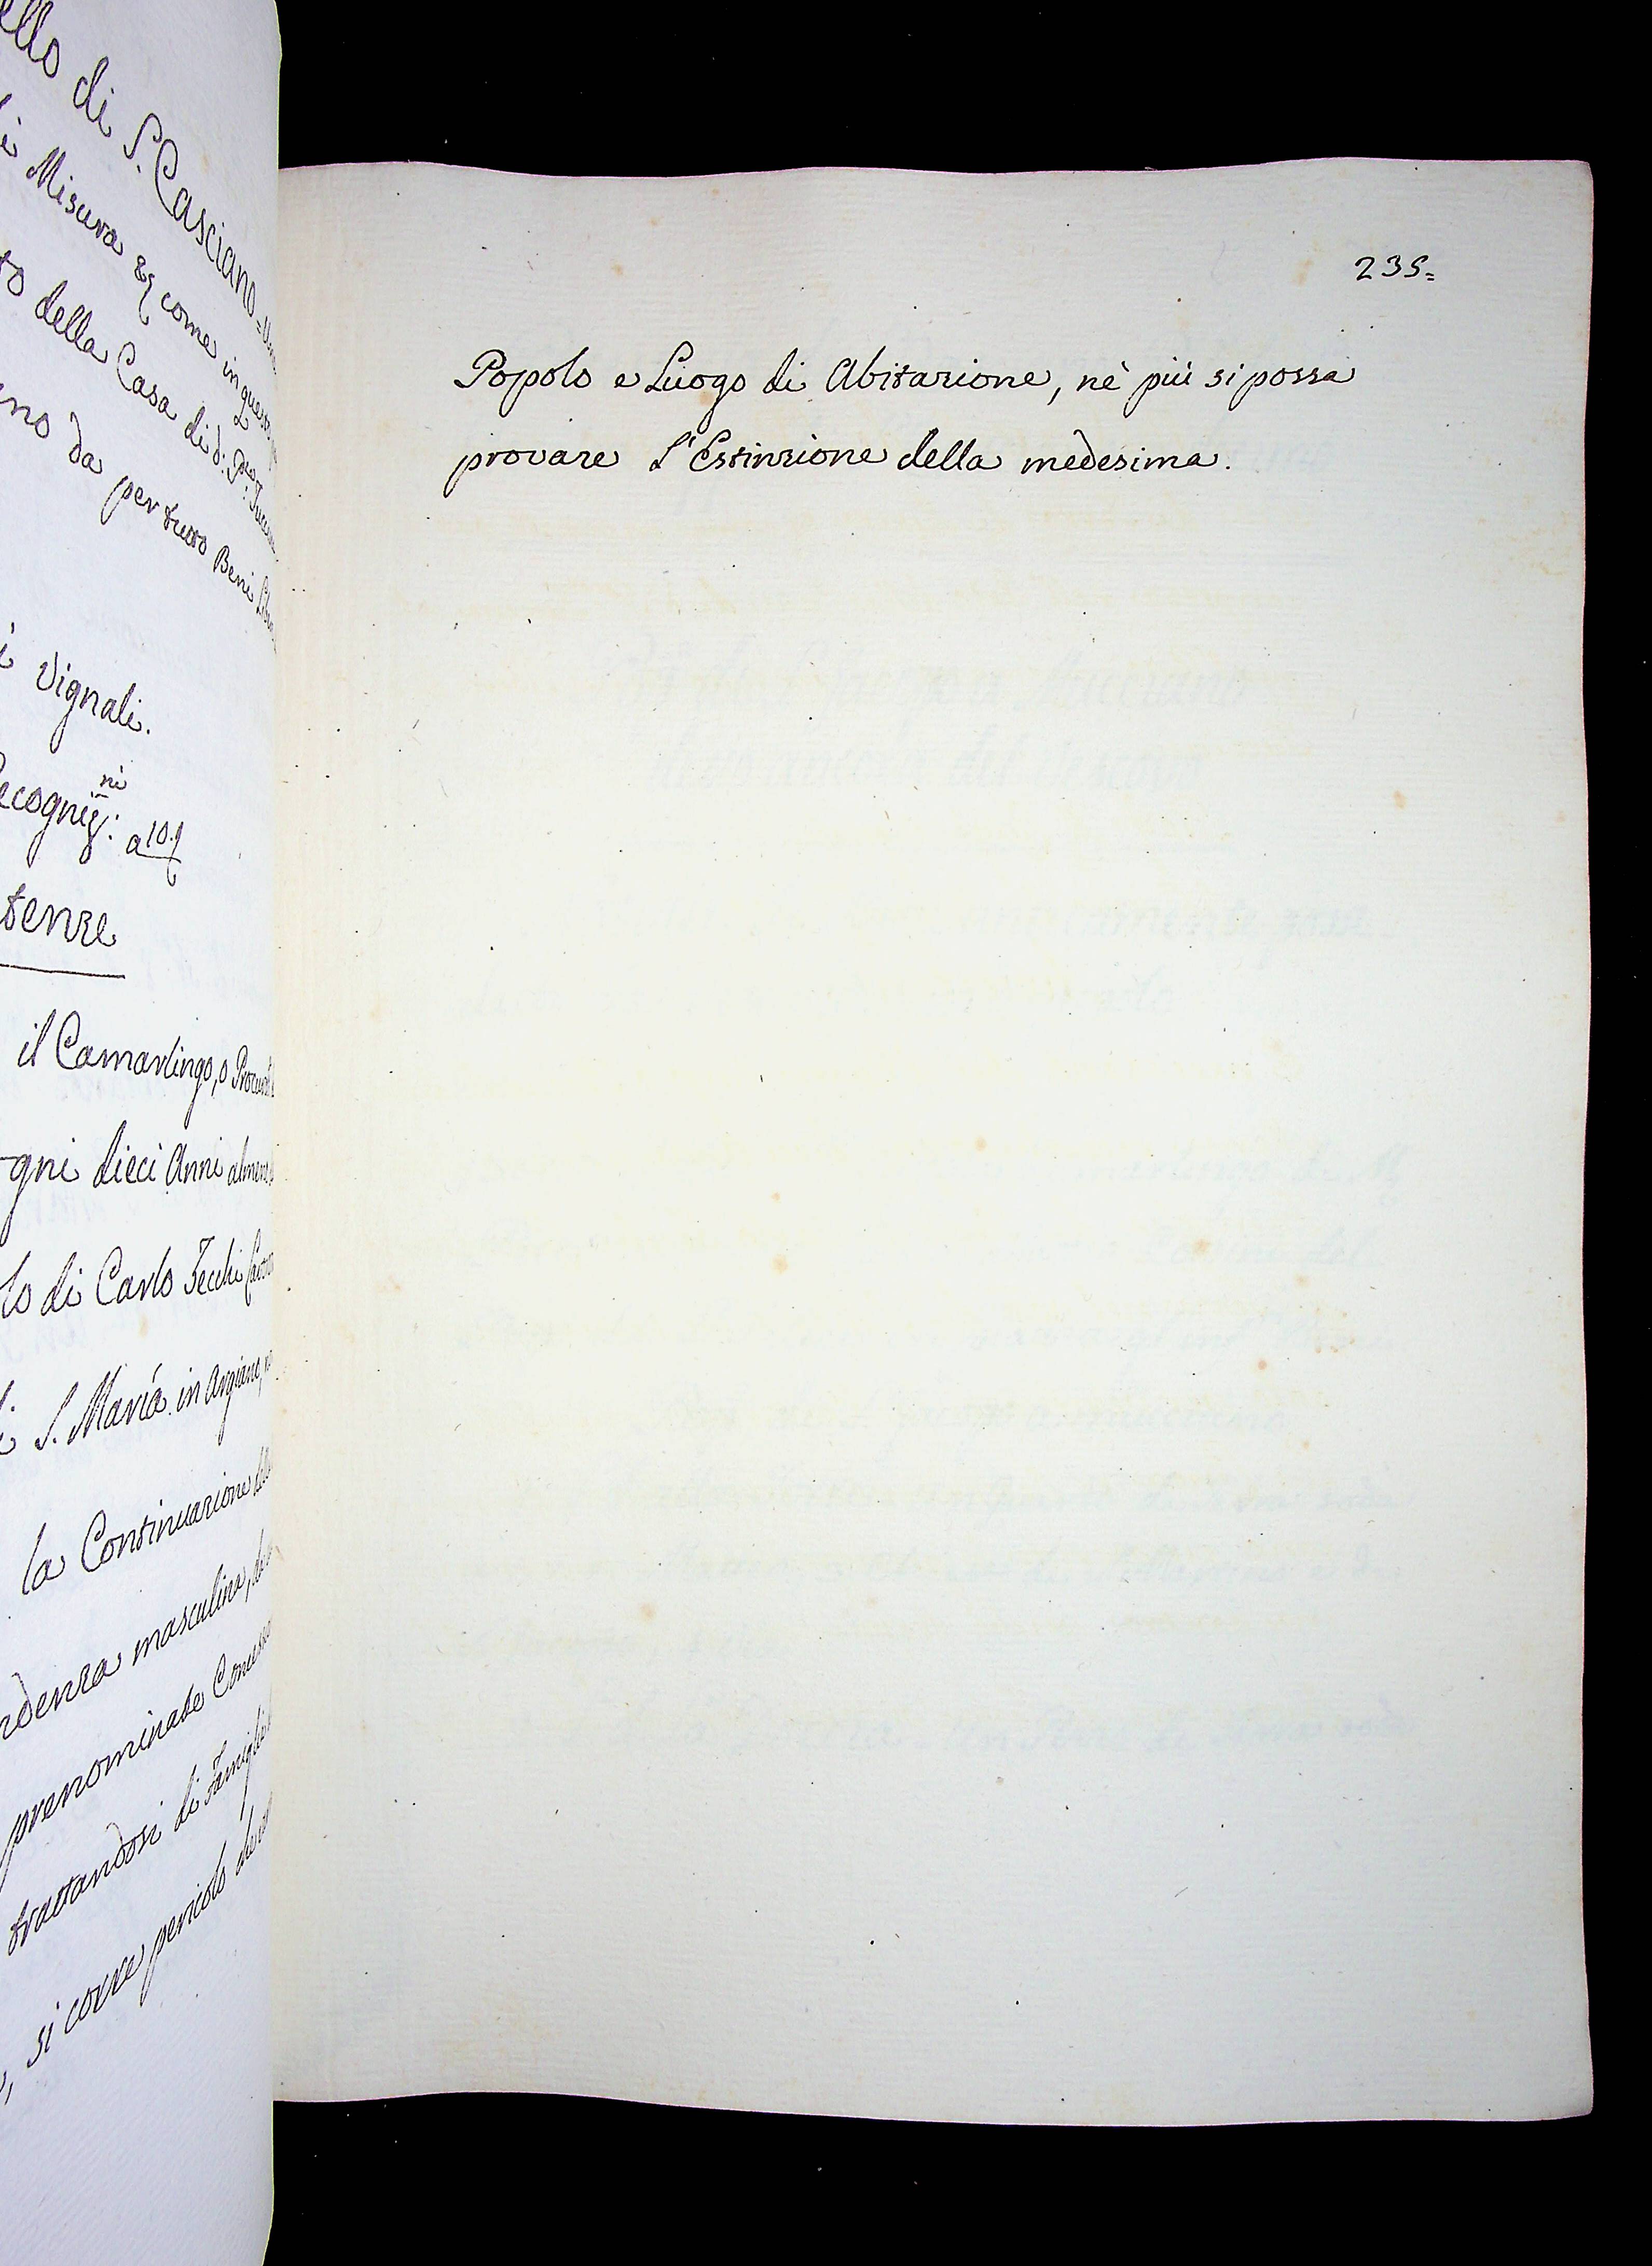 ello di S. Casciano =
Misura &c come in questo
to della Casa di d:
no da per tutto Beni
Vignali.
ecogniz:ni a 10.9
tenze
il Camarlingo, o
gni dieci Anni almeno
lo di Carlo Fecchi
S. Maria in Argiano,
la Continuazione
denza masculina,
prenominate
trattandosi di Famiglie
si corre pericolo che
235=
Popolo e Luogo di Abitazione, nè più si possa
provare l'Estinzione della medesima.